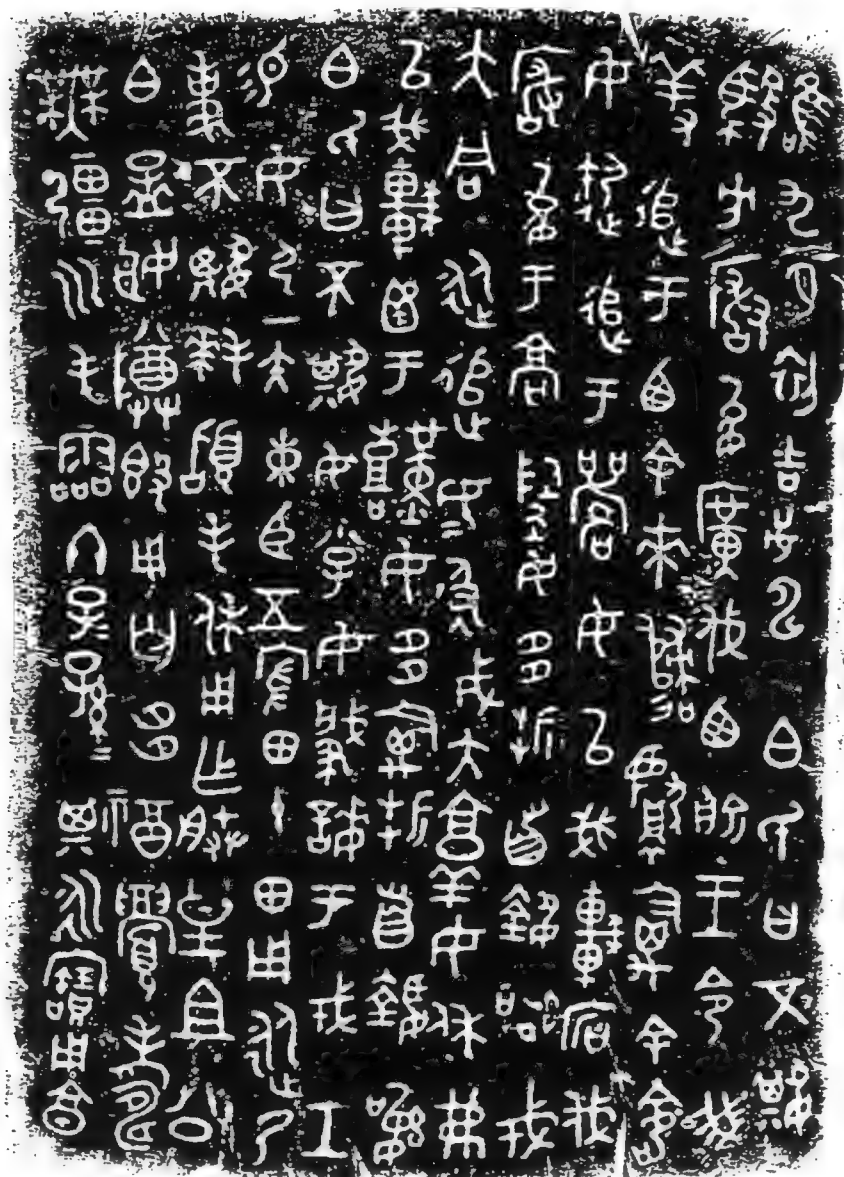 唯九月初吉戊申白氏曰不𡢁
馭方厰允廣伐西俞王令我
羞追于西余來歸獻禽余命
女御追于女以我車宕伐
厰允于高陶女多折首執訊戎
大同從追女=彶戎大𦎫女休弗
以我車圅于艱女多禽折首執訊
白氏曰不𡢁女小子女肇誨于戎工
易女弓一矢束臣五家田十田用從乃
事不𡢁拜稽手休用乍朕皇且公
白孟姬尊簋用匄多福眉壽
無疆永屯霝冬子=孫=其永寶用享